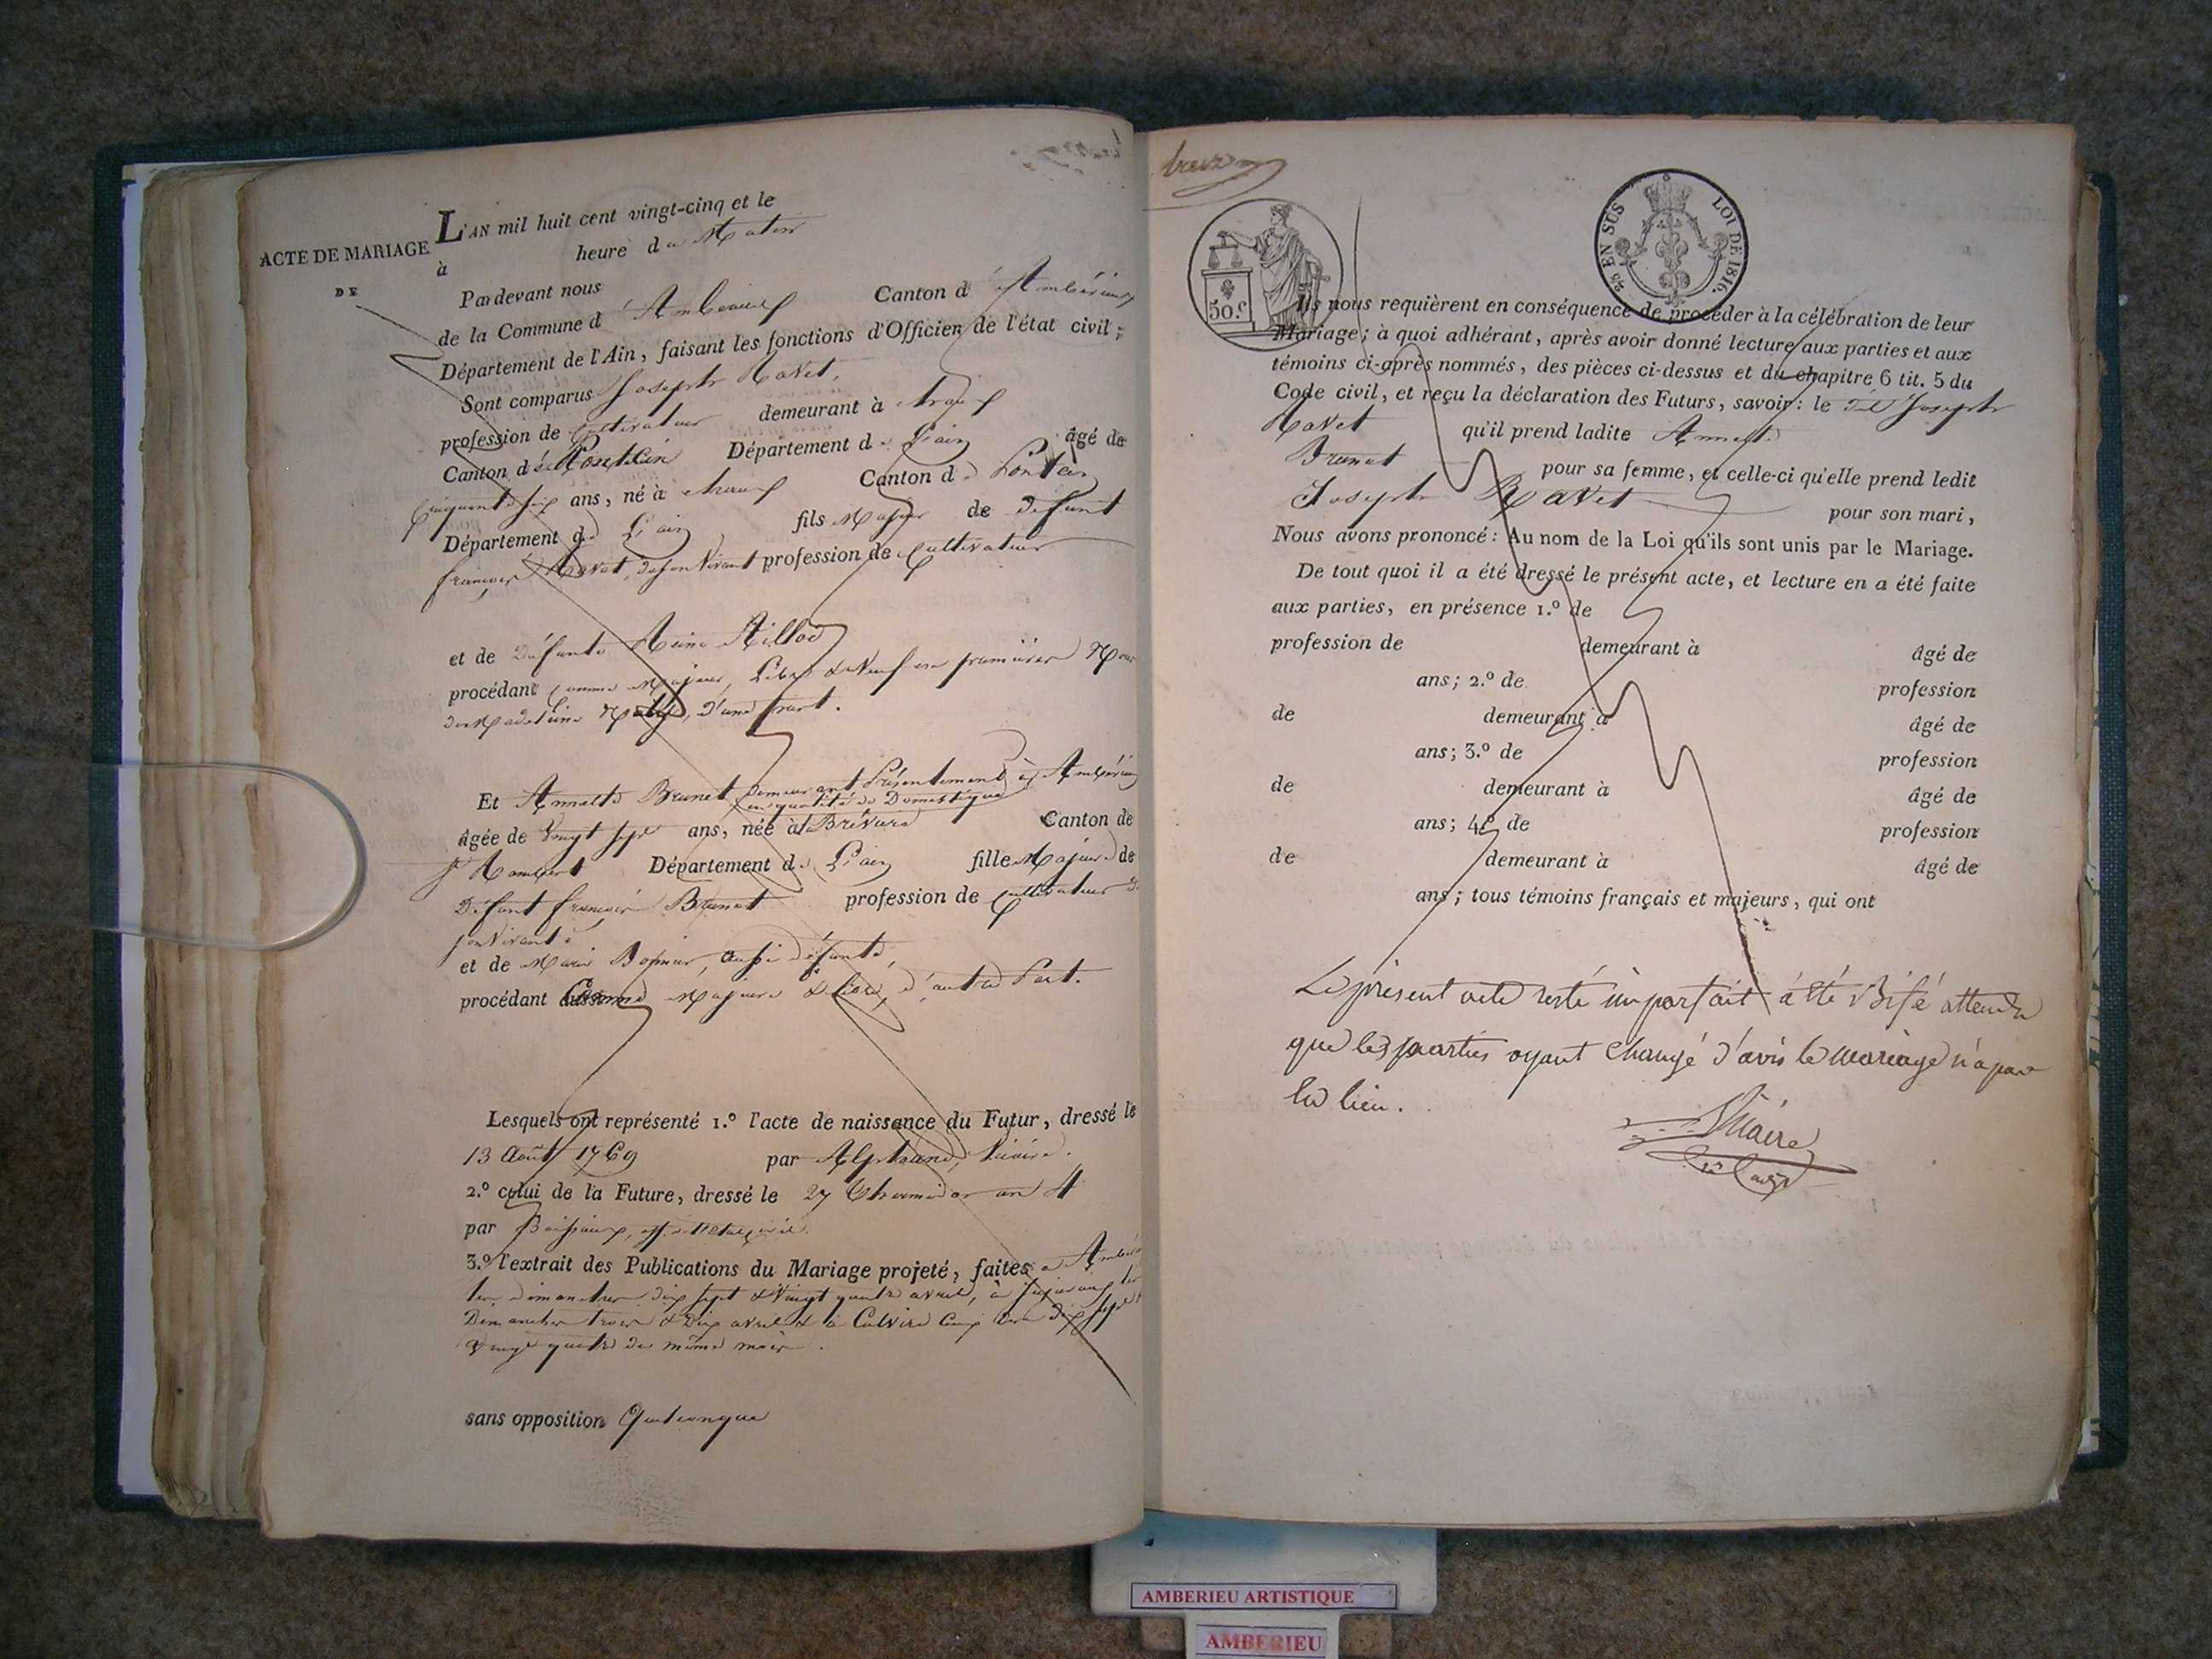 ACTE DE MARIAGE
DE
L'AN mil huit cent vingt-cinq et le
à heure du Matin
Pardevant nous
de la Commune d'Ambérieux Canton d'Ambérieux
Département de l'Ain, faisant les fonctions d'Officier de l'état civil;
Sont comparus Joseph Ravet,
profession de Cultivateur demeurant à
Canton de Pontdain Département de L'ain âgé de
Cinquante six ans, né à Canton de
Département de L'ain fils Majeur de défunt
françois Ravet, de son Vivant profession de Cultivateur
et de Défunte Reine
procédant comme Majeur, Libre & Veuf en premières
de Madeleine d'une part.
Et Annette Brunet demeurant Présentement à Ambérieux
en qualité de Domestique
âgée de Vingt sept ans, née à Canton de
St Rambert Département de L'ain fille Majeure de
Défunt françois Brunet profession de Cultivateur de
son Vivant
et de Marie aussi défunte,
procédant Comme Majeure & libre, d'autre Part.
Lesquels ont représenté 1.º l'acte de naissance du Futur, dressé le
13 Août 1769 par Vicaire.
2.º celui de la Future, dressé le 27 Thermidor an 4
par off. de l'état civil.
3.º l'extrait des Publications du Mariage projeté, faites à
les dimanches dix sept & Vingt quatre avril, à Jujurieux les
Dimanches trois & Dix avril & à les dix sept &
Vingt quatre du même mois.
sans opposition Quelconque
treize
50 c.
2/5 EN SUS LOI DE 1816.
Ils nous requièrent en conséquence de procéder à la célébration de leur
Mariage; à quoi adhérant, après avoir donné lecture aux parties et aux
témoins ci-après nommés, des pièces ci-dessus et du chapitre 6 tit. 5 du
Code civil, et reçu la déclaration des Futurs, savoir: le dit Joseph
Ravet qu'il prend ladite Annette
Brunet pour sa femme, et celle-ci qu'elle prend ledit
Joseph Ravet pour son mari,
Nous avons prononcé: Au nom de la Loi qu'ils sont unis par le Mariage.
De tout quoi il a été dressé le présent acte, et lecture en a été faite
aux parties, en présence 1.º de
profession de demeurant à âgé de
ans; 2.º de profession
de demeurant à âgé de
ans; 3.º de profession
de demeurant à âgé de
ans; 4.º de profession
de demeurant à âgé de
ans; tous témoins français et majeurs, qui ont
Le présent acte resté imparfait a été Bifé attendu
que les parties ayant changé d'avis le mariage n'a pas
eu lieu.
AMBERIEU ARTISTIQUE
AMBERIEU